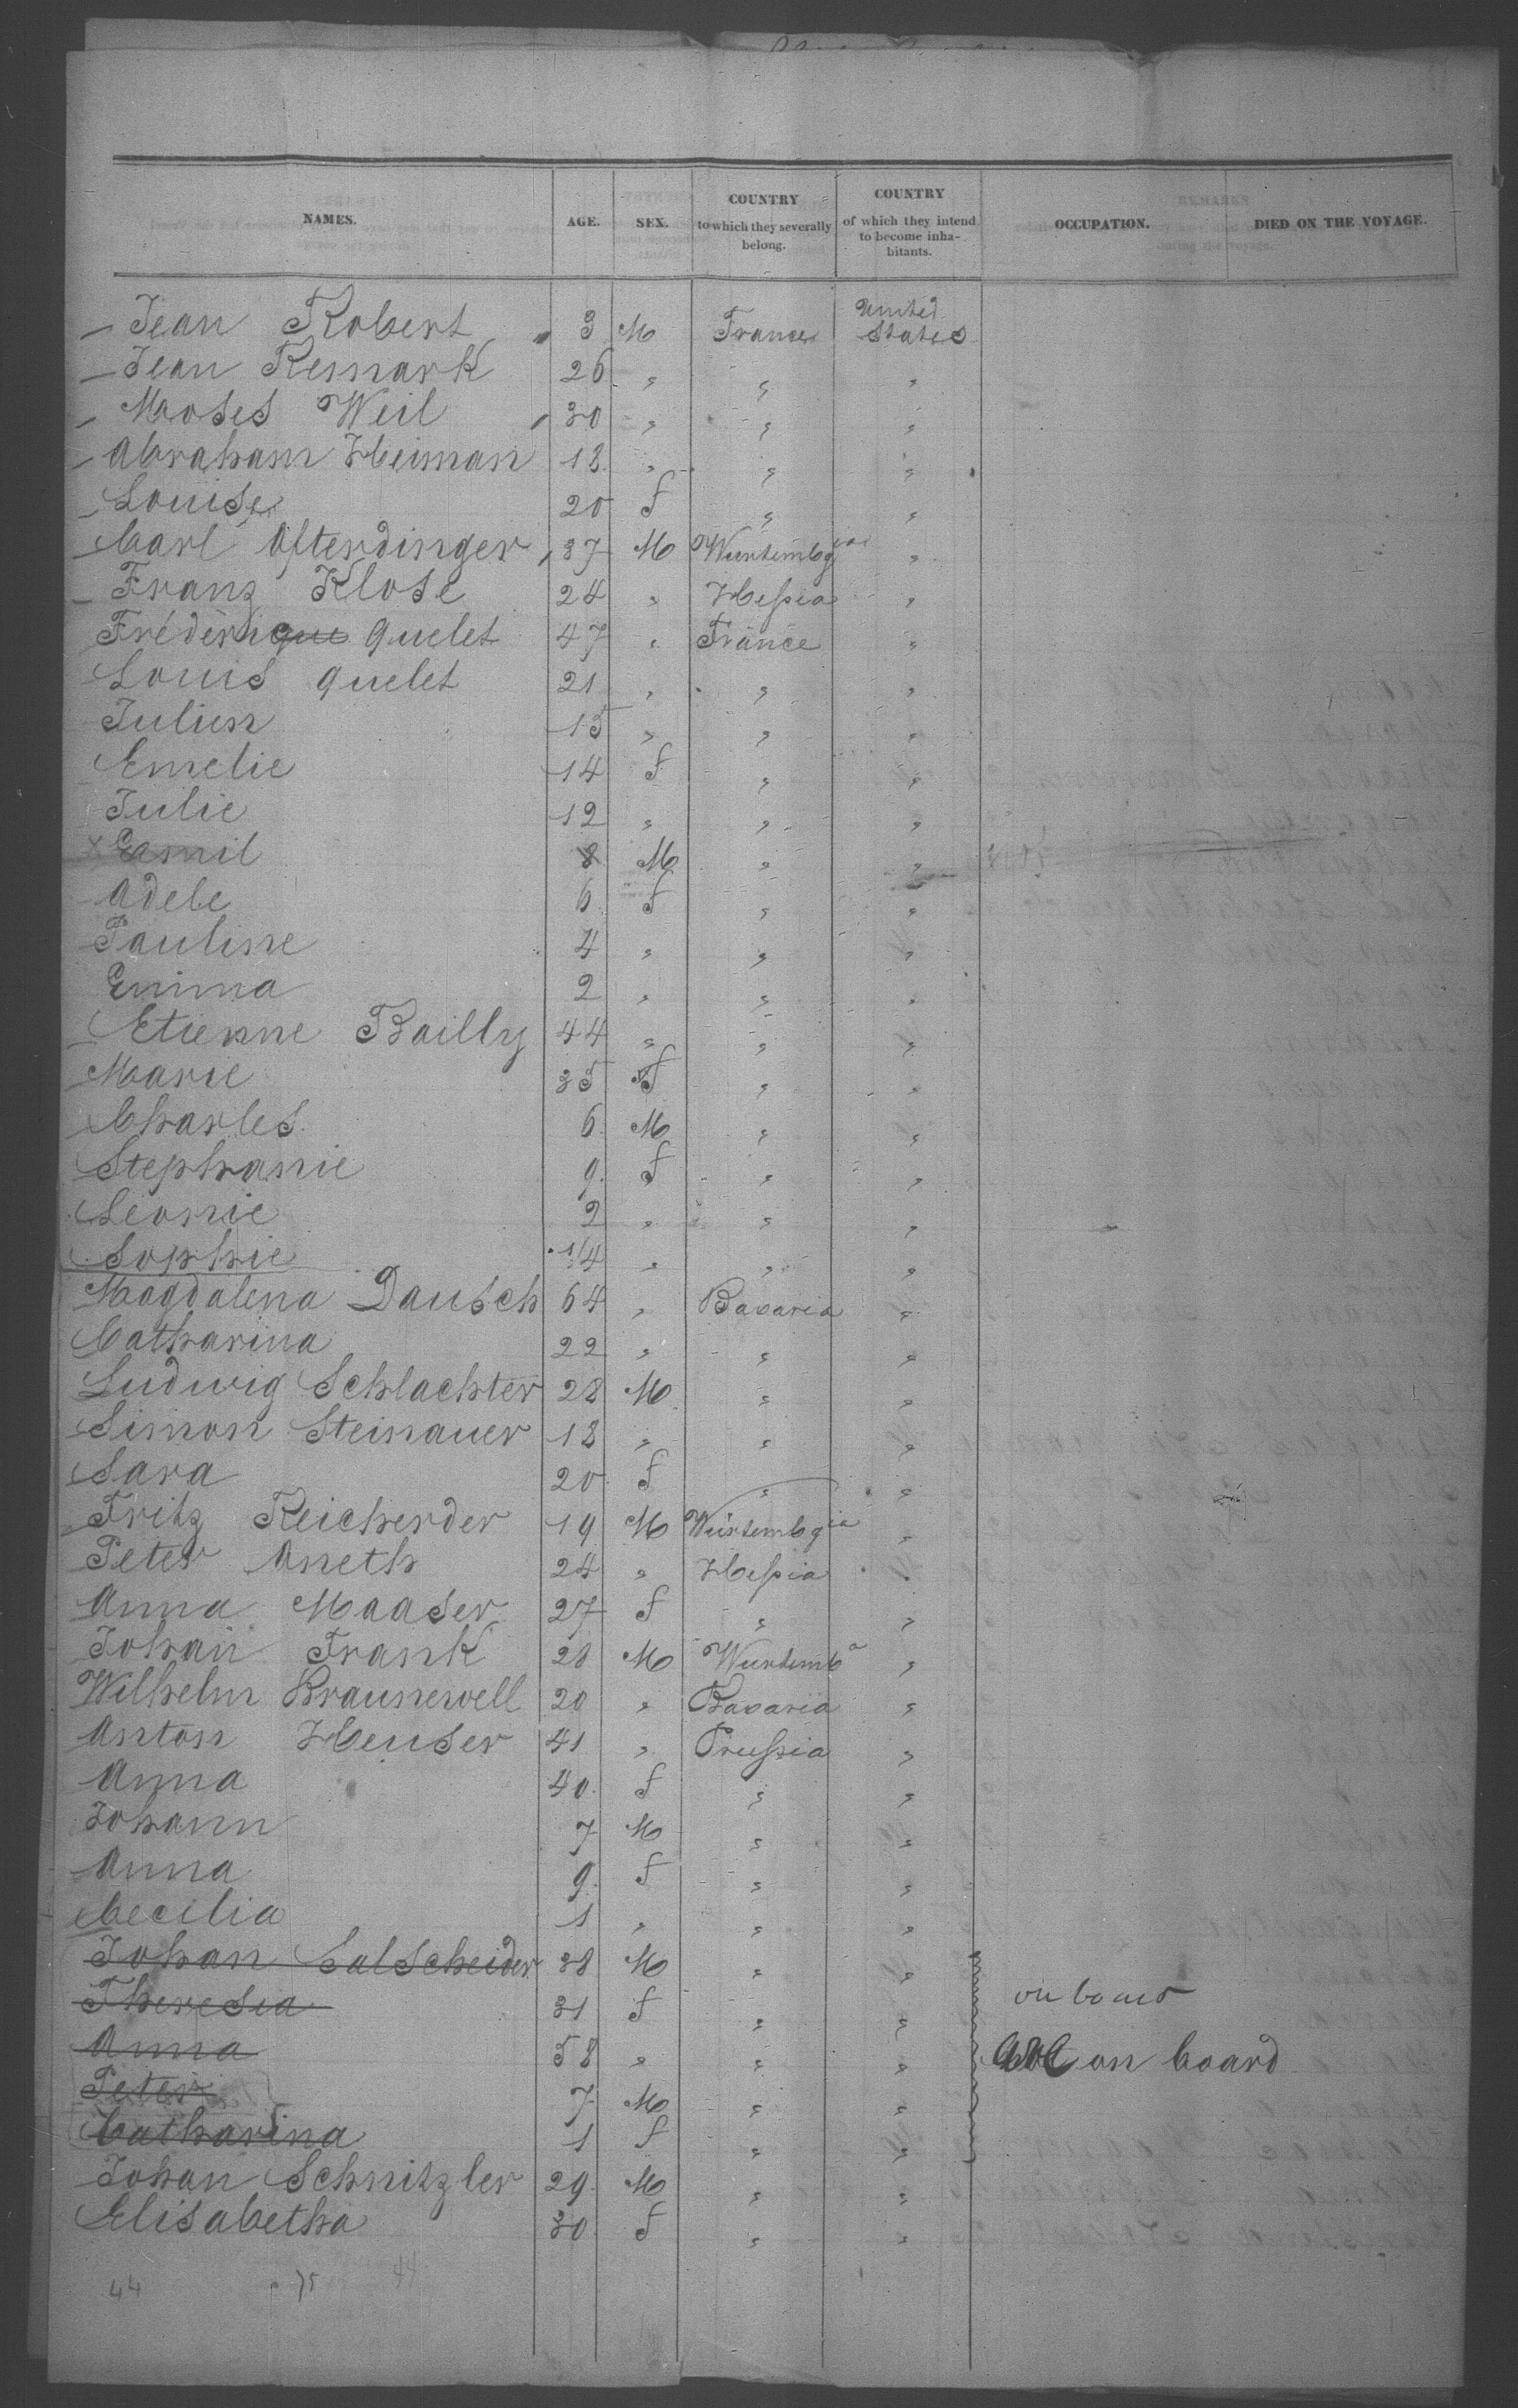 NAMES. AGE. SEX. COUNTRY to which they severally belong. COUNTRY of which they intend to become inhabitants. OCCUPATION. DIED ON THE VOYAGE.
Jean Robert 3 M France United States
Jean Remark 26 " " "
Moses Weil 30 " " "
Abraham Heiman 18 " " "
Louise 20 f " "
Carl Ofterdinger 37 M Würtembg "
Franz Klose 24 " Heſsia "
Fréderique Quelet 47 " France "
Louis Quelet 21 " " "
Julien 15 " " "
Emelie 14 f " "
Julie 12 " " "
x Emil 8 M " "
Adele 6 f " "
Pauline 4 " " "
Emma 2 " " "
Etienne Bailly 44 " " "
Marie 35 f " "
Charles 6 M " "
Stephanie 9 f " "
Leonie 2 " " "
Sophie 1/4 " " "
Magdalena Dausch 64 " Bavaria "
Catharina 22 " " "
Ludwig Schlachter 28 M " "
Simon Steinauer 18 " " "
Sara 20 f " "
Fritz Reicherder 19 M Würtembgia "
Peter Aneth 24 " Heſsia "
Anna Maaser 27 f " "
Johan Frank 28 M Würtemba "
Wilhelm Braunewell 20 " Bavaria "
Anton Heuser 41 " Pruſsia "
Anna 40 f " "
Johann 7 M " "
Anna 9 f " "
Cecilia 1 " " "
Johan Salscheider 38 M " "
Theresia 31 f " " on board
Anna 58 " " " on board
Peter 7 M " "
Catharina 1 f " "
Johan Schnitzler 29 M " "
Elisabetha 30 f " "
44 75 44